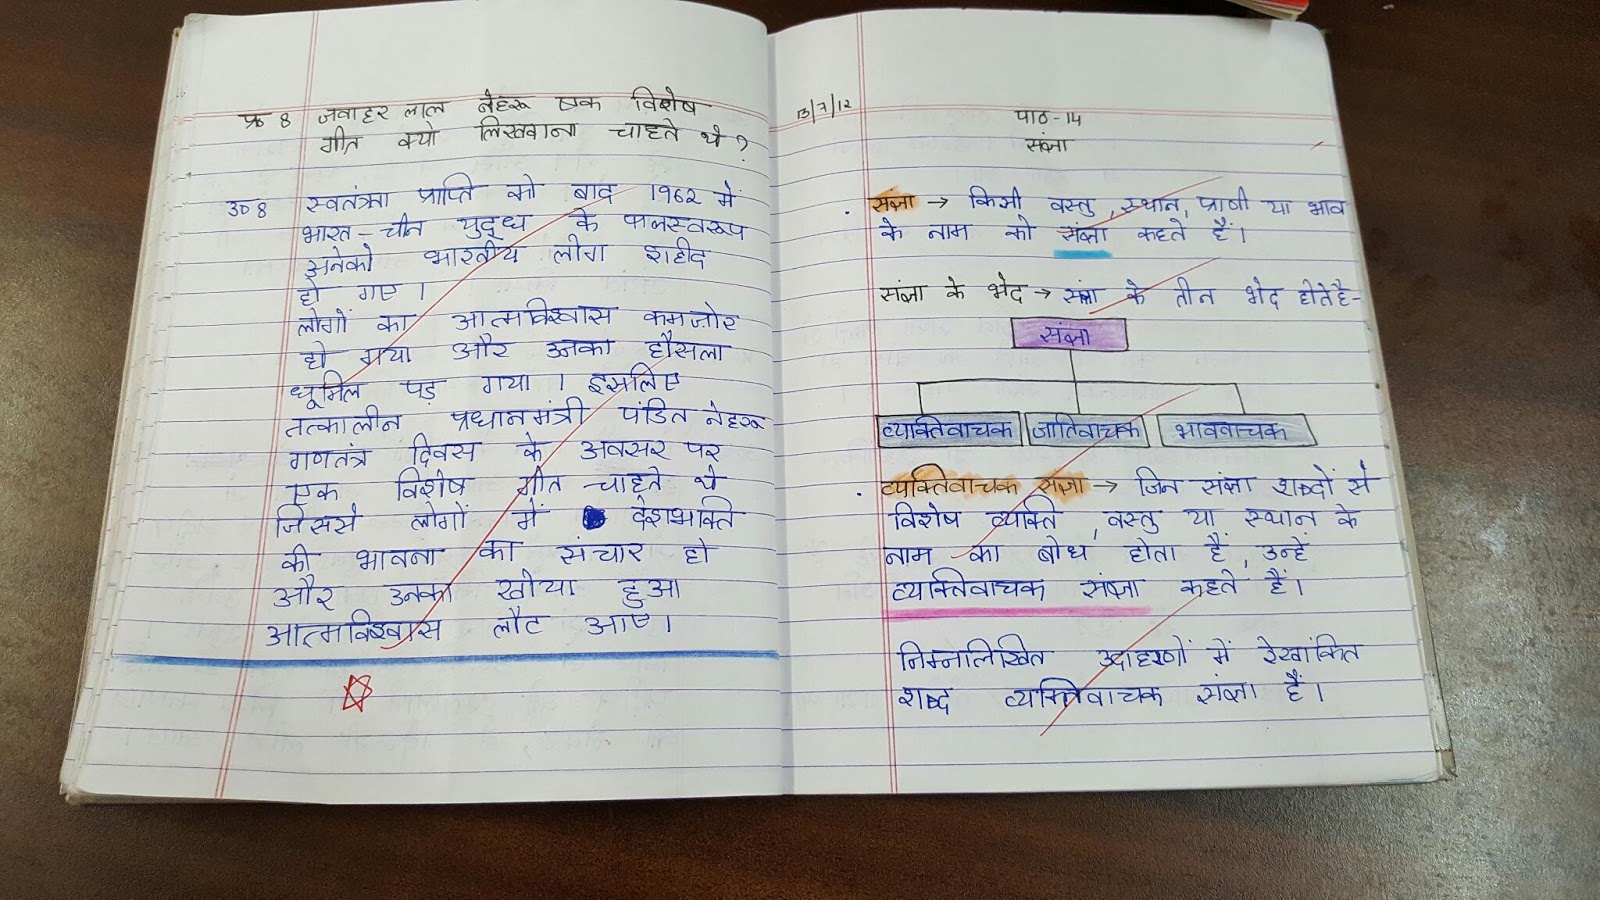 प्र 8 जवाहर लाल नेहरू एक विशेष
गीत क्यो लिखवाना चाहते थे ?
उ० 8 स्वतंत्रता प्राप्ति को बाद 1962 में
भारत - चीन युद्ध के फलस्वरूप
अनेको भारतीय लोग शहीद
हो गए ।
लोगों का आत्मविश्वास कमजोर
हो गया और उनका हौसला
धूमिल पड़ गया । इसलिए
तत्कालीन प्रधानमंत्री पंडित नेहरू
गणतंत्र दिवस के अवसर पर
एक विशेष गीत चाहते थे
जिससे लोगों में देशभक्ति
की भावना का संचार हो
और उनका खोया हुआ
आत्मविश्वास लौट आए।
13/7/12
पाठ - 14
संज्ञा
संज्ञा → किसी वस्तु , स्थान, प्राणी या भाव
के नाम को संज्ञा कहते हैं।
संज्ञा के भेद → संज्ञा के तीन भेद होते है-
संज्ञा
व्यक्तिवाचक जातिवाचक भाववाचक
व्यक्तिवाचक संज्ञा → जिन संज्ञा शब्दों से
विशेष व्यक्ति , वस्तु या स्थान के
नाम का बोध होता हैं, उन्हें
व्यक्तिवाचक संज्ञा कहते हैं।
निम्नलिखित उदाहरणों में रेखांकित
शब्द व्यक्तिवाचक संज्ञा हैं।